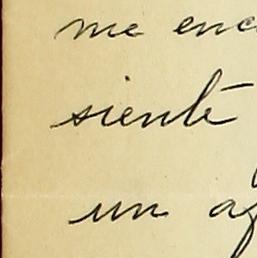 me enc
siente
un a